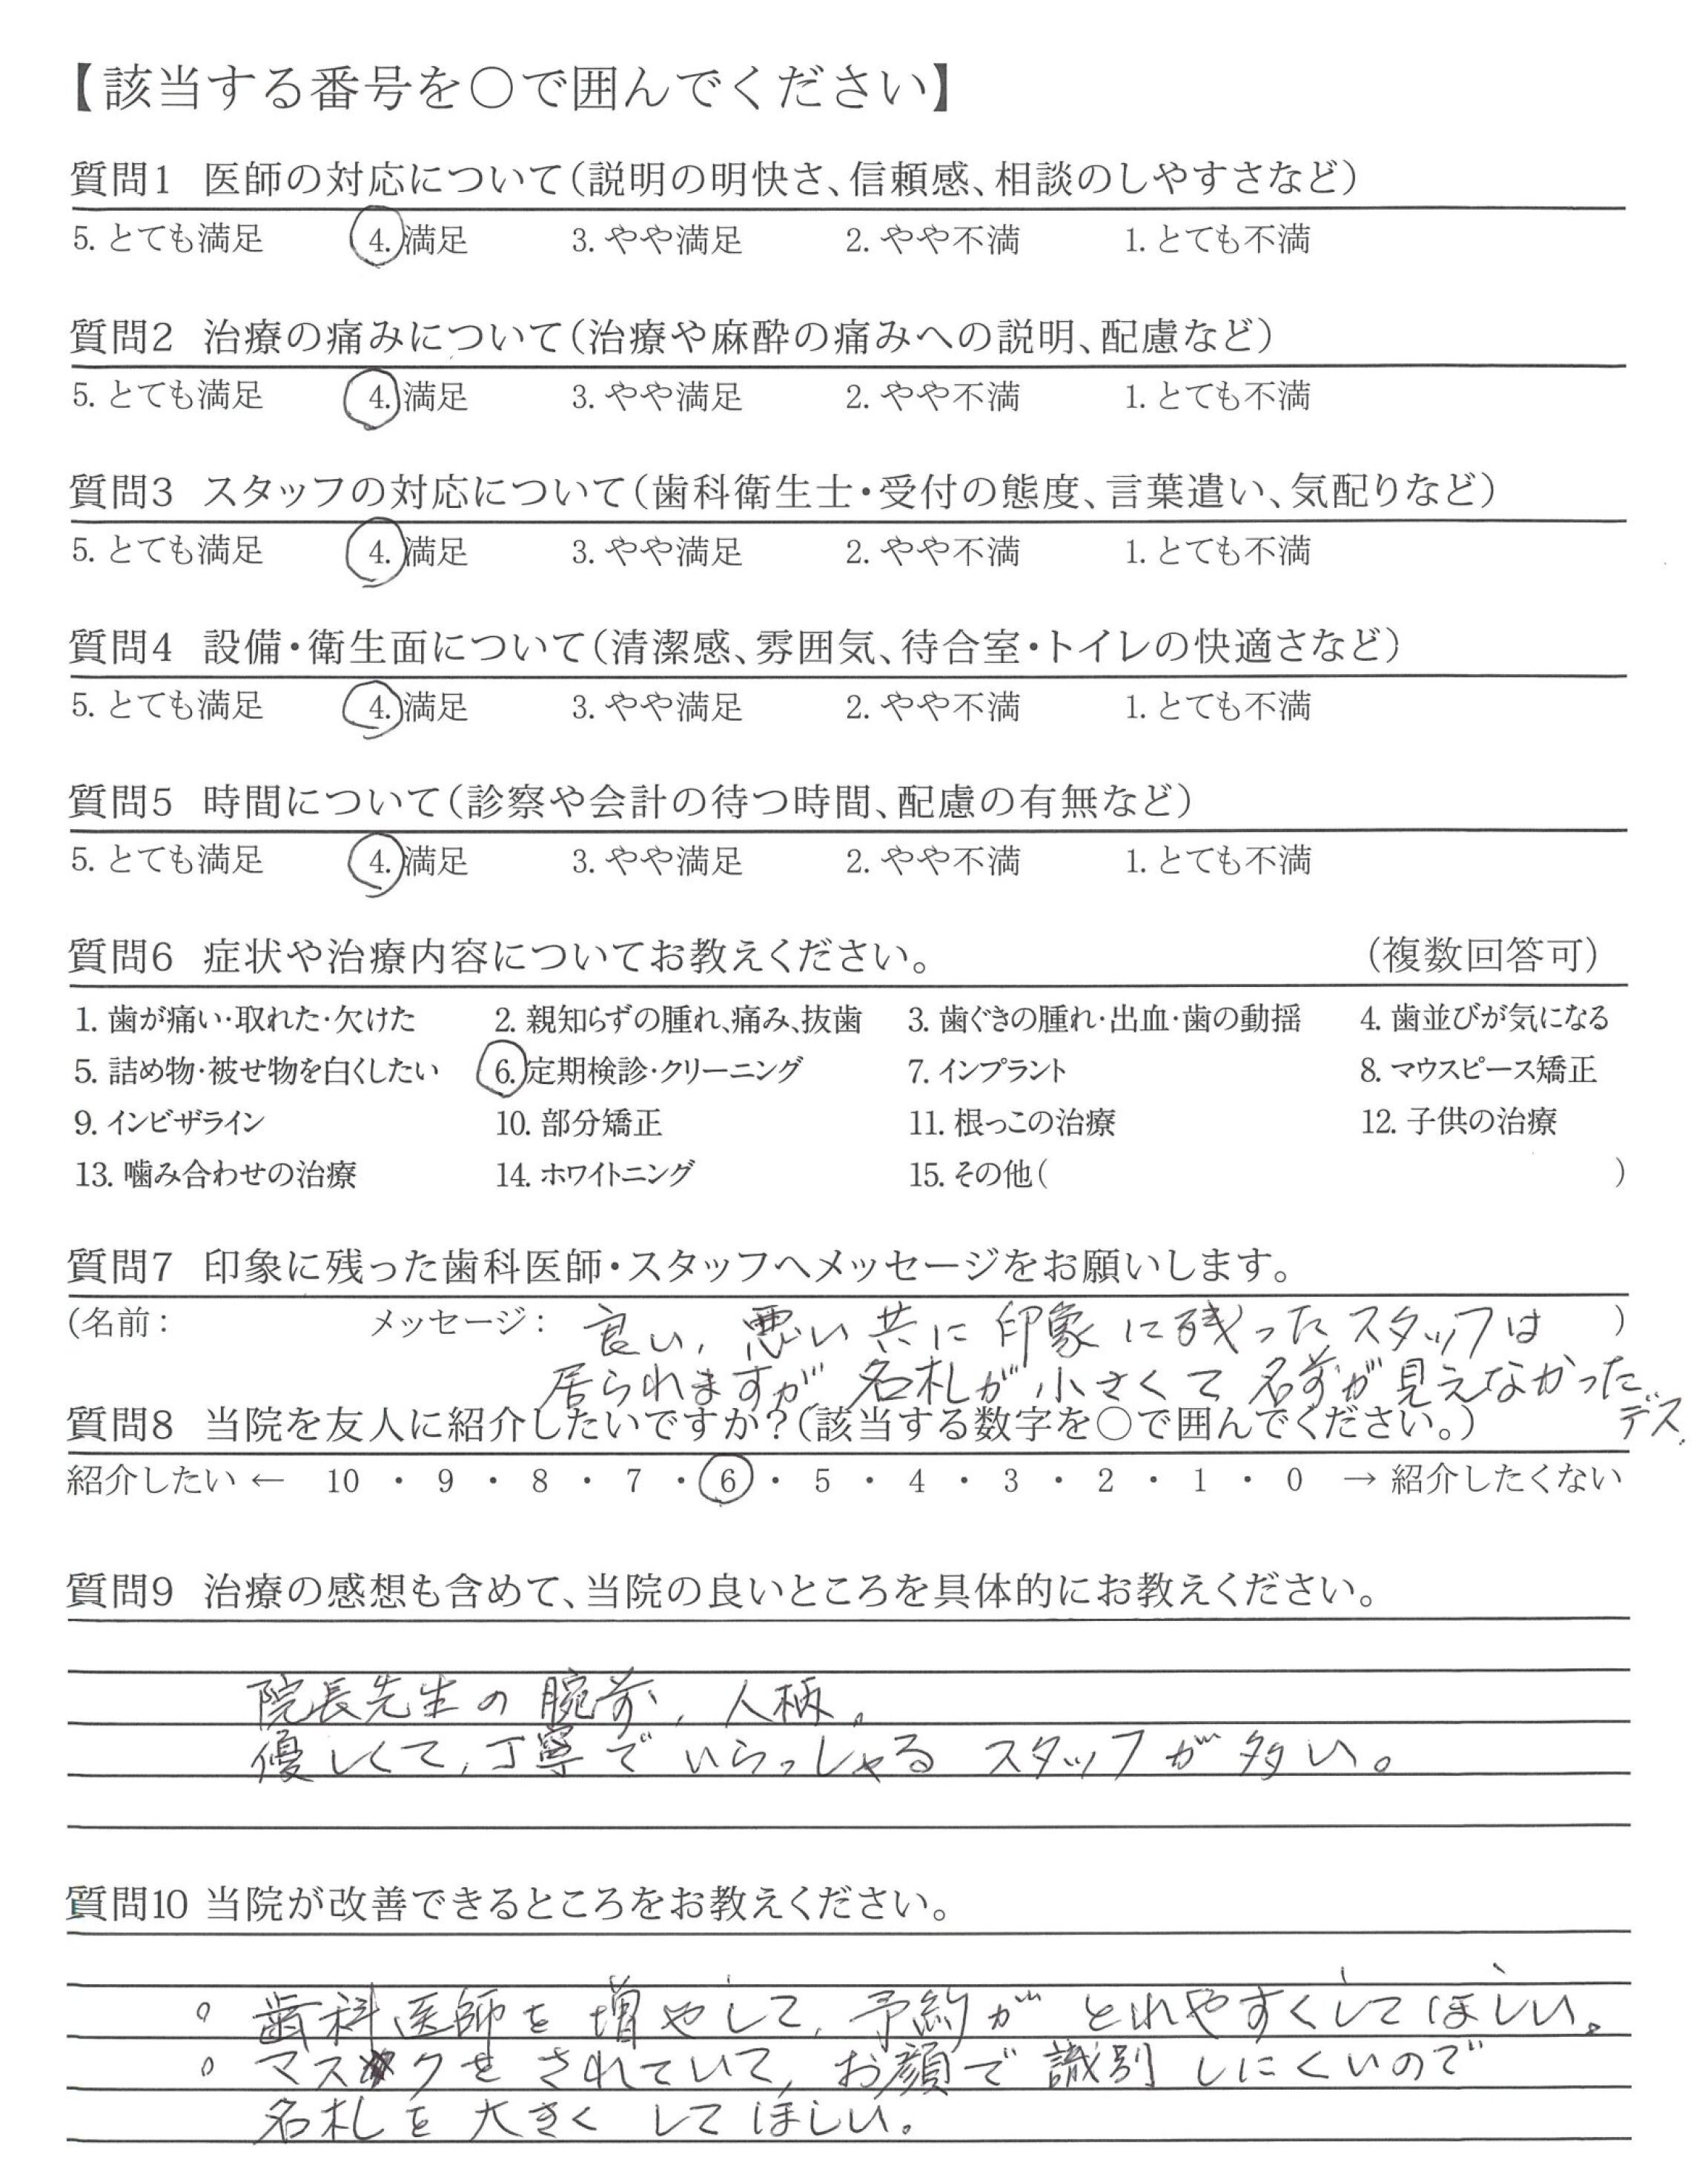 【該当する番号を○で囲んでください】
質問1 医師の対応について(説明の明快さ、信頼感、相談のしやすさなど)
5. とても満足 4. 満足 3. やや満足 2. やや不満 1. とても不満
質問2 治療の痛みについて(治療や麻酔の痛みへの説明、配慮など)
5. とても満足 4. 満足 3. やや満足 2. やや不満 1. とても不満
質問3 スタッフの対応について(歯科衛生士・受付の態度、言葉遣い、気配りなど)
5. とても満足 4. 満足 3. やや満足 2. やや不満 1. とても不満
質問4 設備・衛生面について(清潔感、雰囲気、待合室・トイレの快適さなど)
5. とても満足 4. 満足 3. やや満足 2. やや不満 1. とても不満
質問5 時間について(診察や会計の待つ時間、配慮の有無など)
5. とても満足 4. 満足 3. やや満足 2. やや不満 1. とても不満
質問6 症状や治療内容についてお教えください。 (複数回答可)
1. 歯が痛い・取れた・欠けた 2. 親知らずの腫れ、痛み、抜歯 3. 歯ぐきの腫れ・出血・歯の動揺 4. 歯並びが気になる
5. 詰め物・被せ物を白くしたい 6. 定期検診・クリーニング 7. インプラント 8. マウスピース矯正
9. インビザライン 10. 部分矯正 11. 根っこの治療 12. 子供の治療
13. 噛み合わせの治療 14. ホワイトニング 15. その他( )
質問7 印象に残った歯科医師・スタッフへメッセージをお願いします。
(名前: メッセージ: 良い, 悪い 共に 印象 に残ったスタッフは )
居られますが 名札が 小さくて 名前が 見えなかった
デス.
質問8 当院を友人に紹介したいですか?(該当する数字を○で囲んでください。)
紹介したい ← 10 ・ 9 ・ 8 ・ 7 ・ 6 ・ 5 ・ 4 ・ 3 ・ 2 ・ 1 ・ 0 → 紹介したくない
質問9 治療の感想も含めて、当院の良いところを具体的にお教えください。
院長先生の 腕前, 人柄。
優しくて, 丁寧で いらっしゃる スタッフが 多い。
質問10 当院が改善できるところをお教えください。
○ 歯科医師を 増やして, 予約が とれやすくしてほしい。
○ マスクを されていて, お顔で 識別 しにくいので
名札を 大きく してほしい。